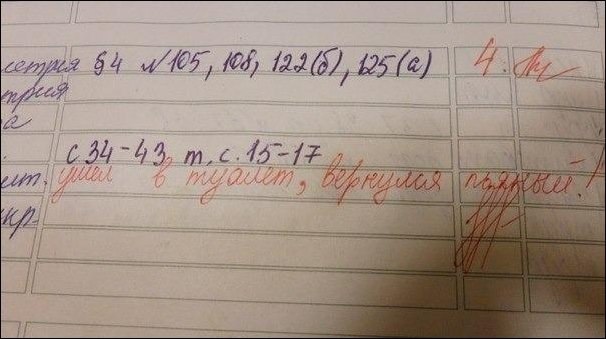 етрия §4 №105, 108, 122(б), 125(а) 4.
трия
а
с 34-43 т, с. 15-17
ит. ушел в туалет, вернулся пьяный!
кр.